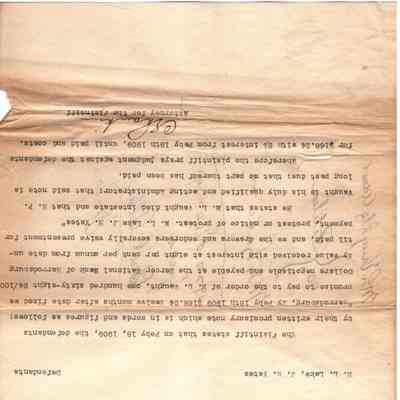 E. L. Lake, J. R. Yates Defendants
the Plaintiff states that on Feby 18, 1909, the defendants
by their written promissory note which is in words and figures as follows:
"Harrodsburg, Ky Feby 18th 1909 $168.04 twelve months after date we
promise to pay to the order of R. L. Vaught, one hundred sixty-eight 04/100
Dollars negotiable and payable at the Mercer National Bank of Harrodsburg
Ky value received with interest at eight per cent per annum from date un-
til paid, and we the drawers and endorsers severally waive presentment for
payment, protest or notice of protest. E. L. Lake J. R. Yates"
He states that R. L. Vaught died intestate and that S. P.
Vaught is his duly qualified and acting administrator; that said note is
long past due; that no part thereof has been paid.
Wherefore the plaintiff prays judgment against the defendants
for $168.04 with 8% interest from Feby 18th, 1909, until paid and costs.
Attorney for the Plaintiff